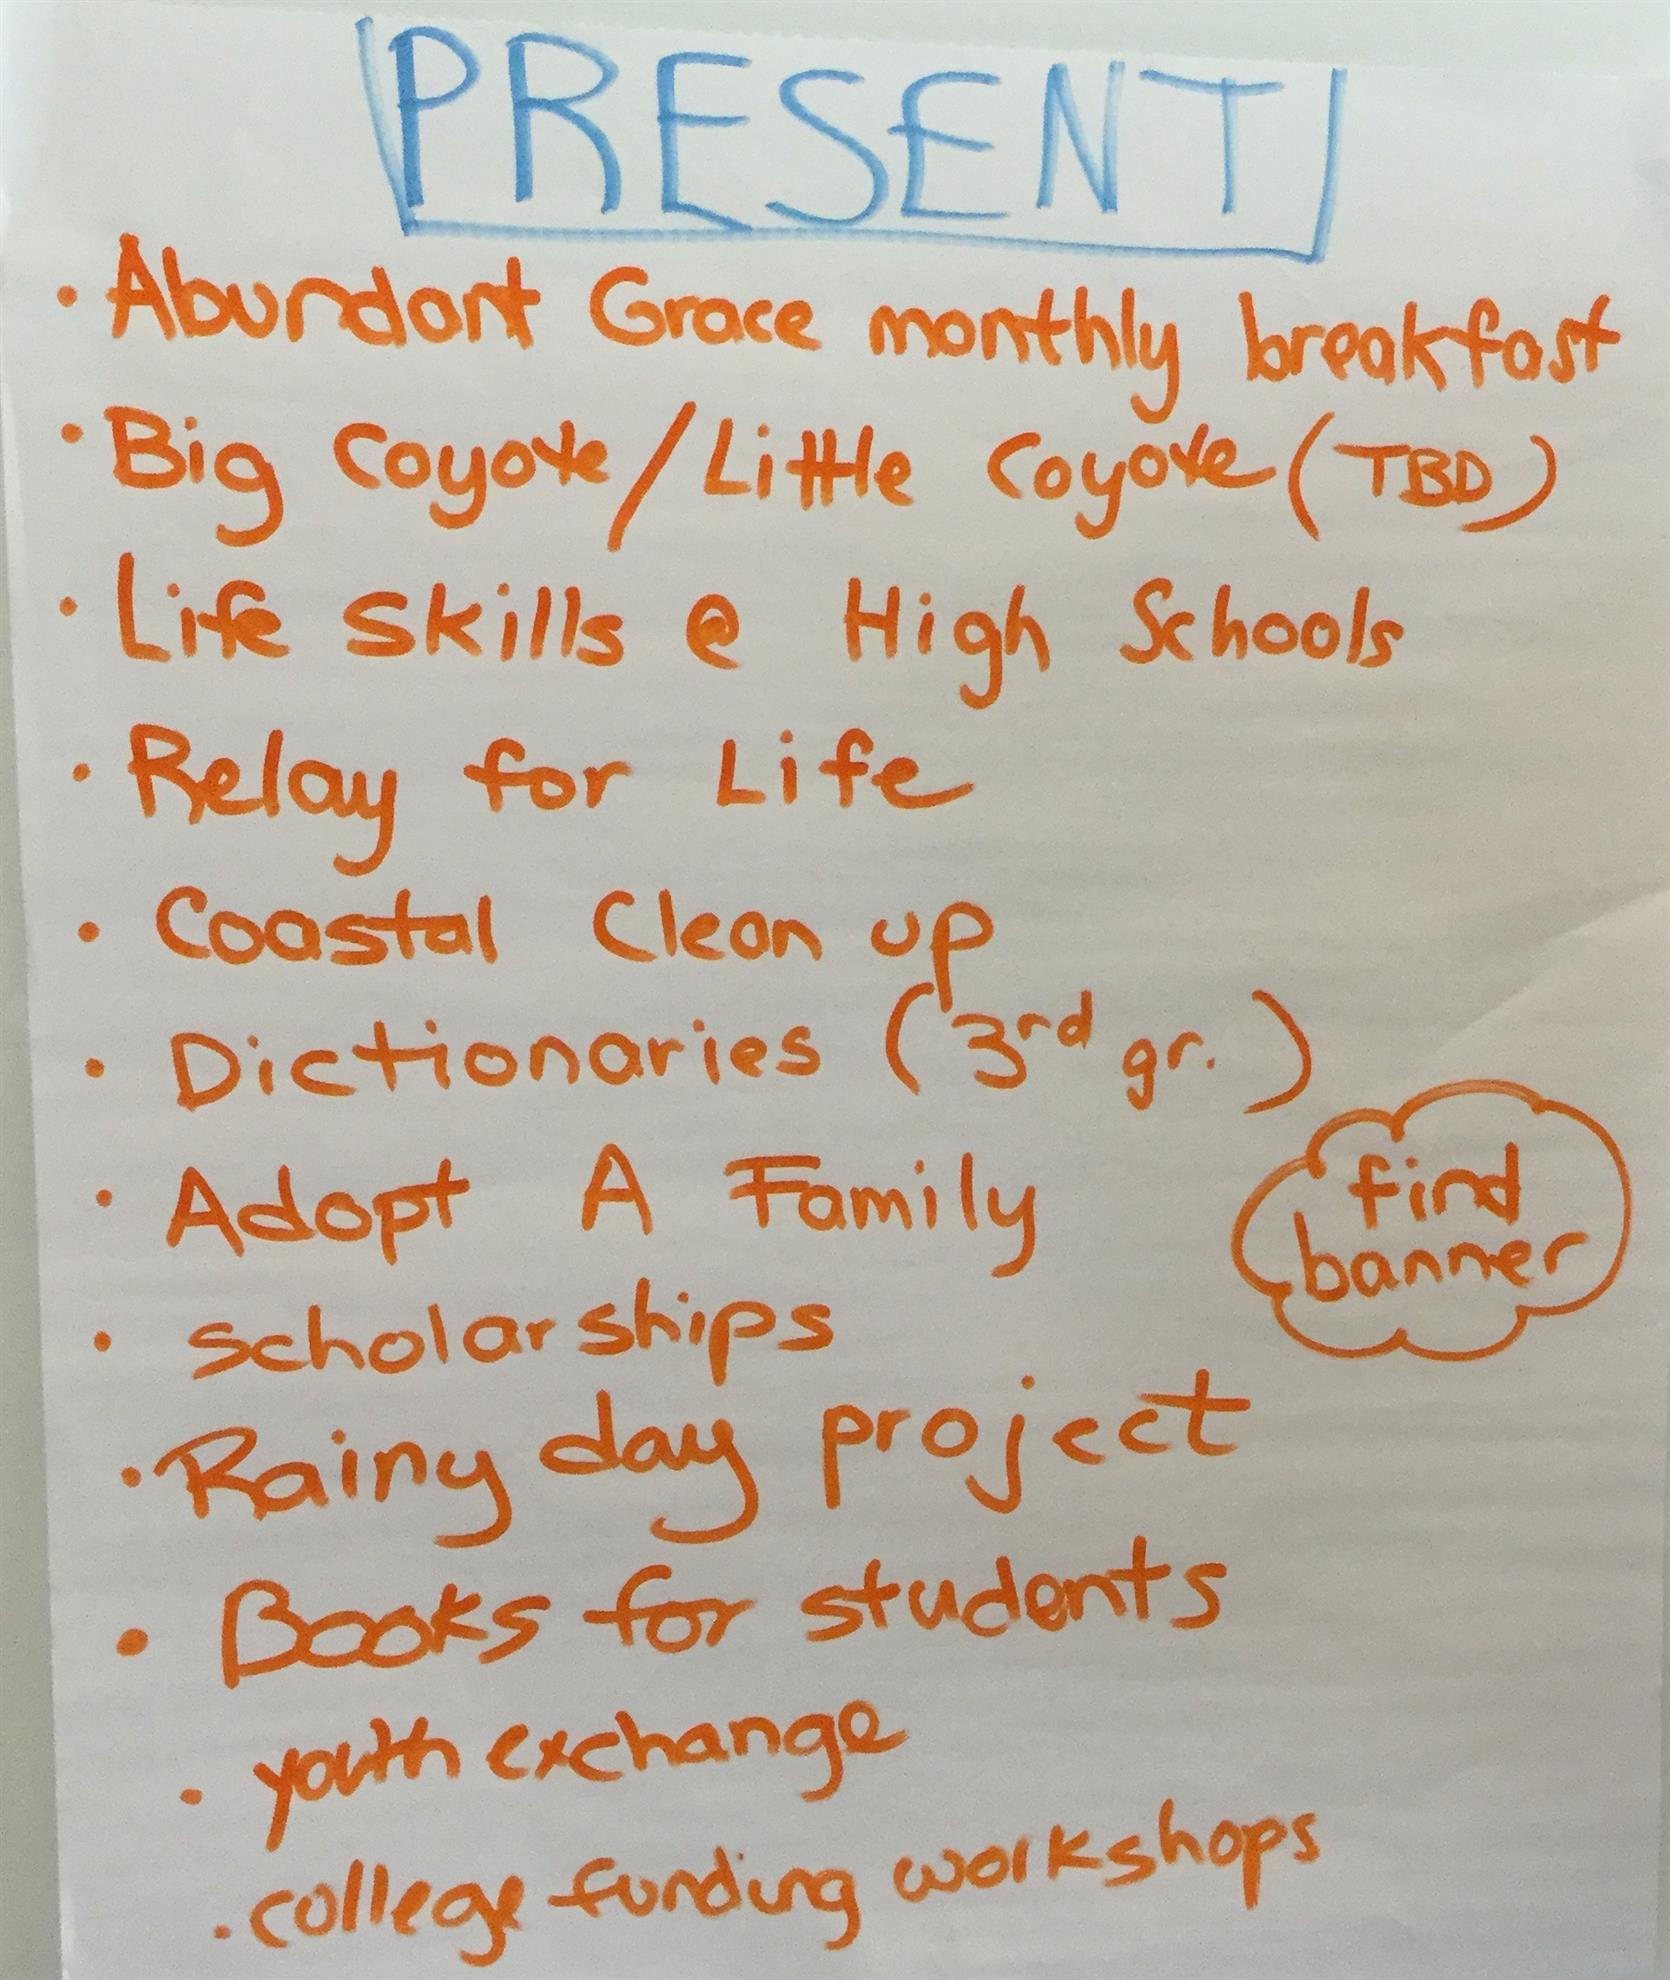 PRESENT
• Abundant Grace monthly breakfast
• Big Coyote/Little Coyote (TBD)
• Life Skills @ High Schools
• Relay for Life
• Coastal Clean up
• Dictionaries (3rd gr.)
• Adopt A Family
find
banner
• Scholarships
• Rainy day project
• Books for students
• youth exchange
• college funding workshops